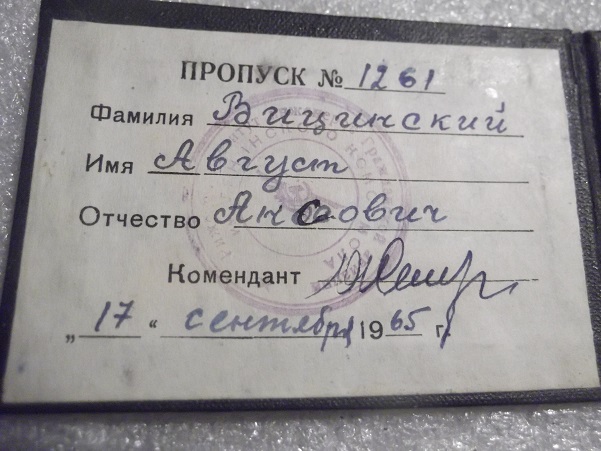 ПРОПУСК № 1261
Фамилия Вицинский
Имя Август
Отчество
Комендант
„17“ сентября 1965 г.